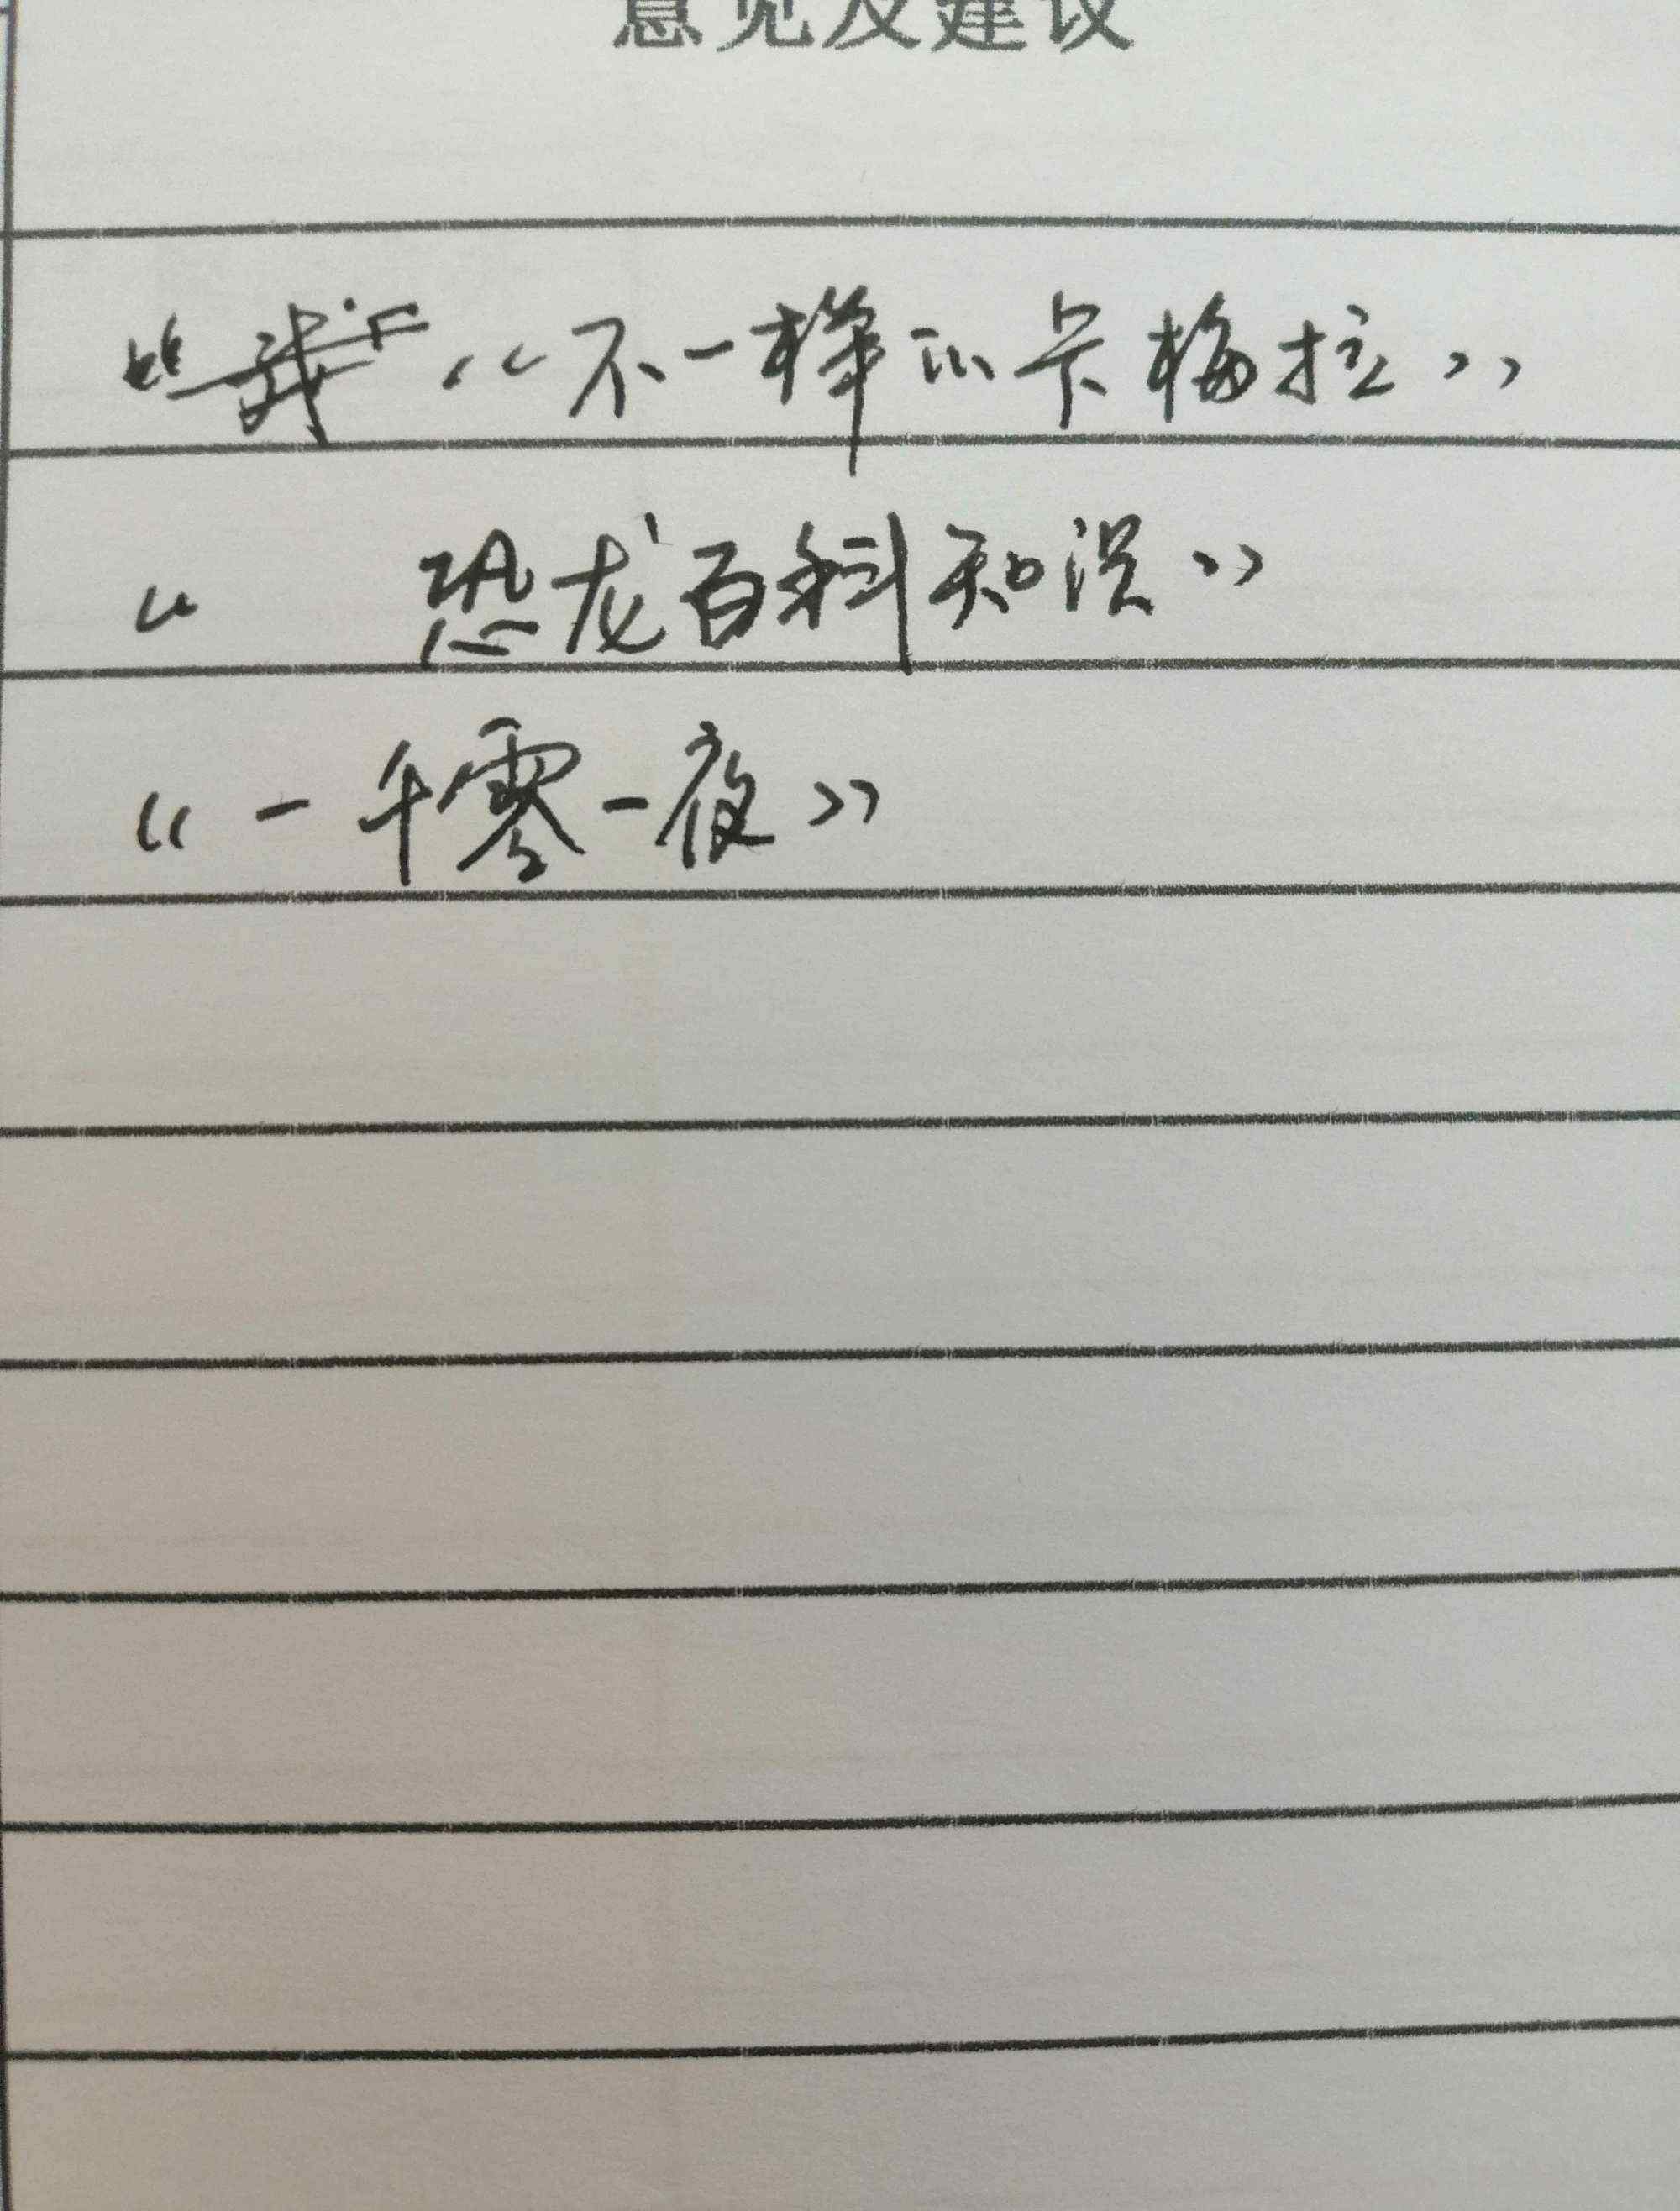 意见及建议
《不一样的卡梅拉》
《 恐龙百科知识》
《一千零一夜》